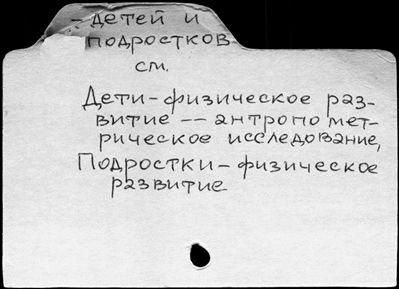 - детей и
подростков
см.
Дети-физическое раз-
витие -- антропомет-
рическое исследование,
Подростки-физическое
развитие